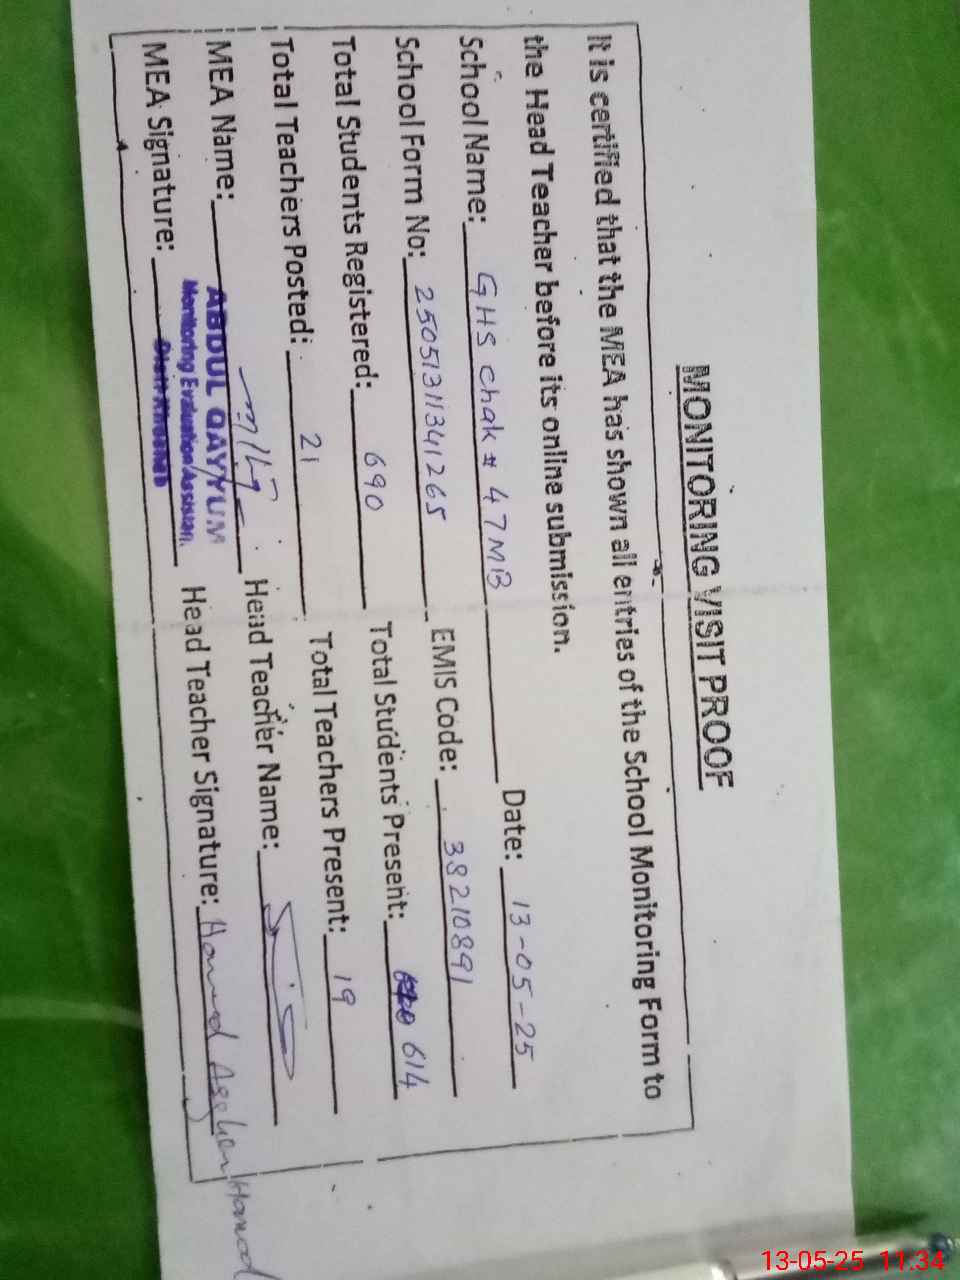 MONITORING VISIT PROOF
It is certified that the MEA has shown all entries of the School Monitoring Form to
the Head Teacher before its online submission.
School Name: GHS Chak # 47MB Date: 13-05-25
School Form No: 25051311341265 EMIS Code: 38210891
Total Students Registered: 690 Total Students Present: 614
Total Teachers Posted: 21 Total Teachers Present: 19
MEA Name: ABDUL QAYYUM Head Teacher Name:
Monitoring Evaluation Assistan
MEA Signature: Head Teacher Signature: Hamed
13-05-25 11:34